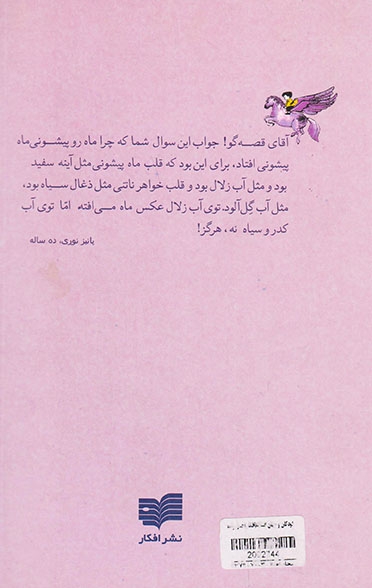 آقای قصه‌گو! جواب این سوال شما که چرا ماه رو پیشونی ماه
پیشونی افتاد، برای این بود که قلب ماه پیشونی مثل آینه سفید
بود و مثل آب زلال بود و قلب خواهر ناتنی مثل ذغال سیاه بود،
مثل آب گِل‌آلود. توی آب زلال عکس ماه می‌افته امّا توی آب
کدر و سیاه نه، هرگز!
پانیز نوری، ده ساله
نشر افکار
2002744